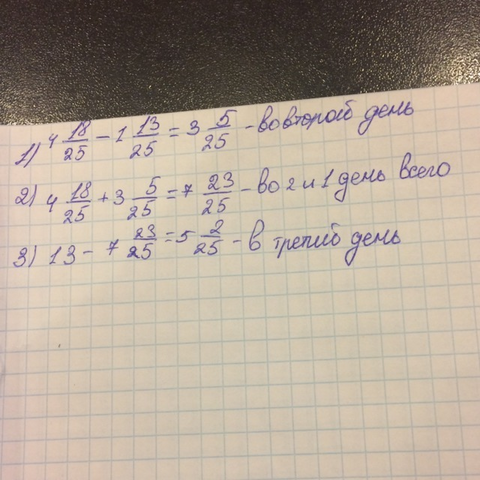 1) 4 18/25 - 1 13/25 = 3 5/25 - во второй день
2) 4 18/25 + 3 5/25 = 7 23/25 - во 2 и 1 день всего
3) 13 - 7 23/25 = 5 2/25 - в третий день